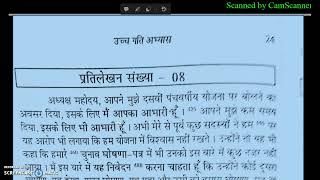 Scanned by CamScanner
उच्च गति अभ्यास
24
प्रतिलेखन संख्या - 08
अध्यक्ष महोदय, आपने मुझे दसवीं पंचवर्षीय योजना पर बोलने का
अवसर दिया, इसके लिए मैं आपका आभारी हूँ। आपने मुझे कम समय
दिया, इसके लिए भी आभारी हूँ। अभी मेरे से पूर्व कुछ सदस्यों ने हम पर
यह आरोप भी लगाया कि हम योजना में विश्वास नहीं रखते। उन्होंने तो यह भी
कहा कि हमारे चुनाव घोषणा-पत्र में भी उनको इस बारे में कुछ नजर नहीं
मैं इस बारे में यह निवेदन करना चाहता हूँ कि उन्होंने कोई दूसरा